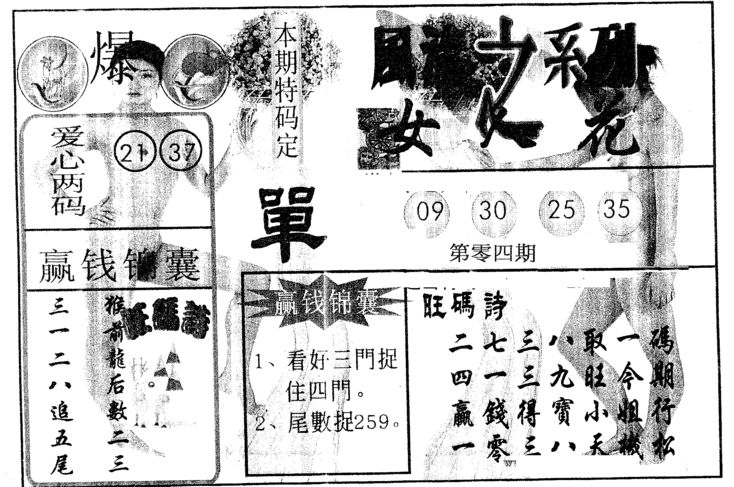 爆
爱心两码
21 37
赢钱锦囊
猴前龍后數二三
三一二八追五尾
旺碼詩
本期特码定
單
女 花
09 30 25 35
第零四期
赢钱锦囊
1、看好三門捉
住四門。
2、尾數捉259。
旺碼詩
碼期行松
一令姐機
取旺小天
八九寶八
三三得三
七一錢零
二四贏一